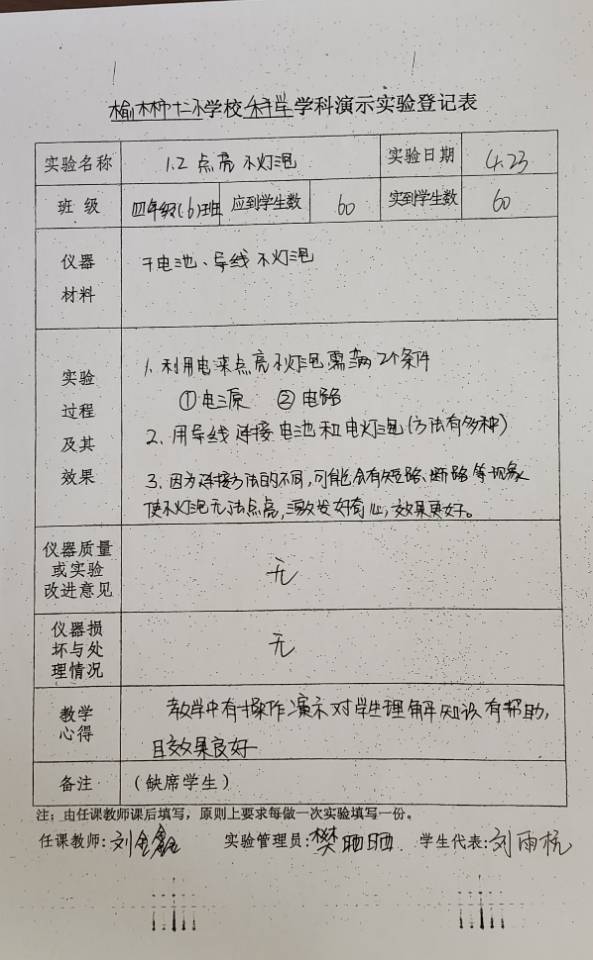 榆林市十二小学校科学学科演示实验登记表
实验名称 1.2 点亮小灯泡 实验日期 4.23
班 级 四年级(6)班 应到学生数 60 实到学生数 60
仪器
材料
干电池、导线 小灯泡
实验
过程
及其
效果
1. 利用电来点亮小灯泡需满2个条件
①电源 ②电路
2. 用导线 连接 电池和电灯泡(方法有多种)
3. 因为连接方法的不同,可能会有短路、断路等现象
使小灯泡无法点亮,激发好奇心,效果良好。
仪器质量
或实验
改进意见
无
仪器损
坏与处
理情况
无
教学
心得
教学中有操作演示对学生理解知识有帮助,
且效果良好
备注 (缺席学生)
注:由任课教师课后填写,原则上要求每做一次实验填写一份。
任课教师:刘金鑫 实验管理员:樊晒晒 学生代表:刘雨杭